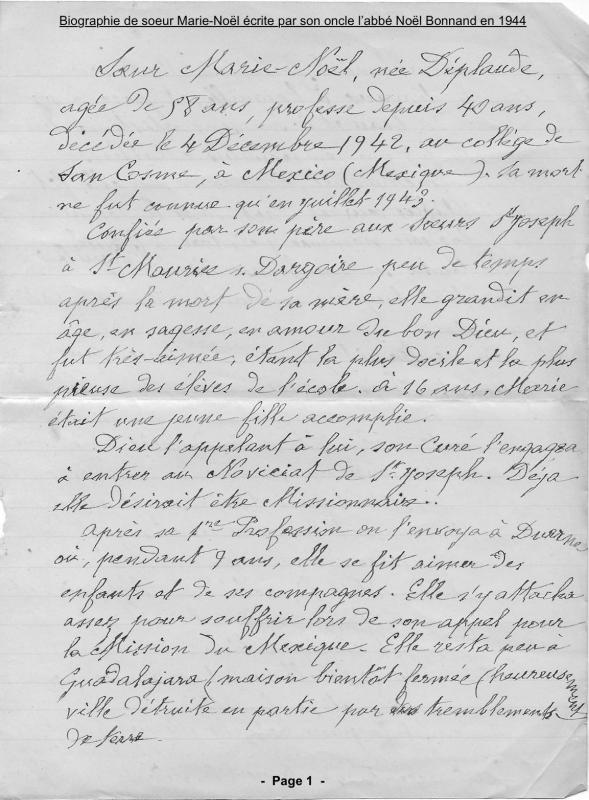 Biographie de soeur Marie-Noël écrite par son oncle l'abbé Noël Bonnand en 1944
Sœur Marie-Noël, née Déplaude,
agée de 58 ans, professe depuis 40 ans,
décédée le 4 Décembre 1942, au collège de
San Cosme, à Mexico (Mexique). Sa mort
ne fut connue qu'en juillet 1943.
Confiée par son père aux Sœurs St Joseph
à St Maurice s. Dargoire peu de temps
après la mort de sa mère, elle grandit en
âge, en sagesse, en amour du bon Dieu, et
fut très-aimée, étant la plus docile et la plus
pieuse des élèves de l'école. à 16 ans, Marie
était une jeune fille accomplie.
Dieu l'appelant à lui, son Curé l'engagea
à entrer au Noviciat de St Joseph. Déja
elle désirait être Missionnaire.
Après sa 1re Profession on l'envoya à Duerne
où, pendant 9 ans, elle se fit aimer des
enfants et de ses compagnes. Elle s'y attacha
assez pour souffrir lors de son appel pour
la Mission du Mexique. Elle resta peu à
Guadalajara (maison bientôt fermée (heureusement
ville détruite en partie par tremblements
de terre.
- Page 1 -